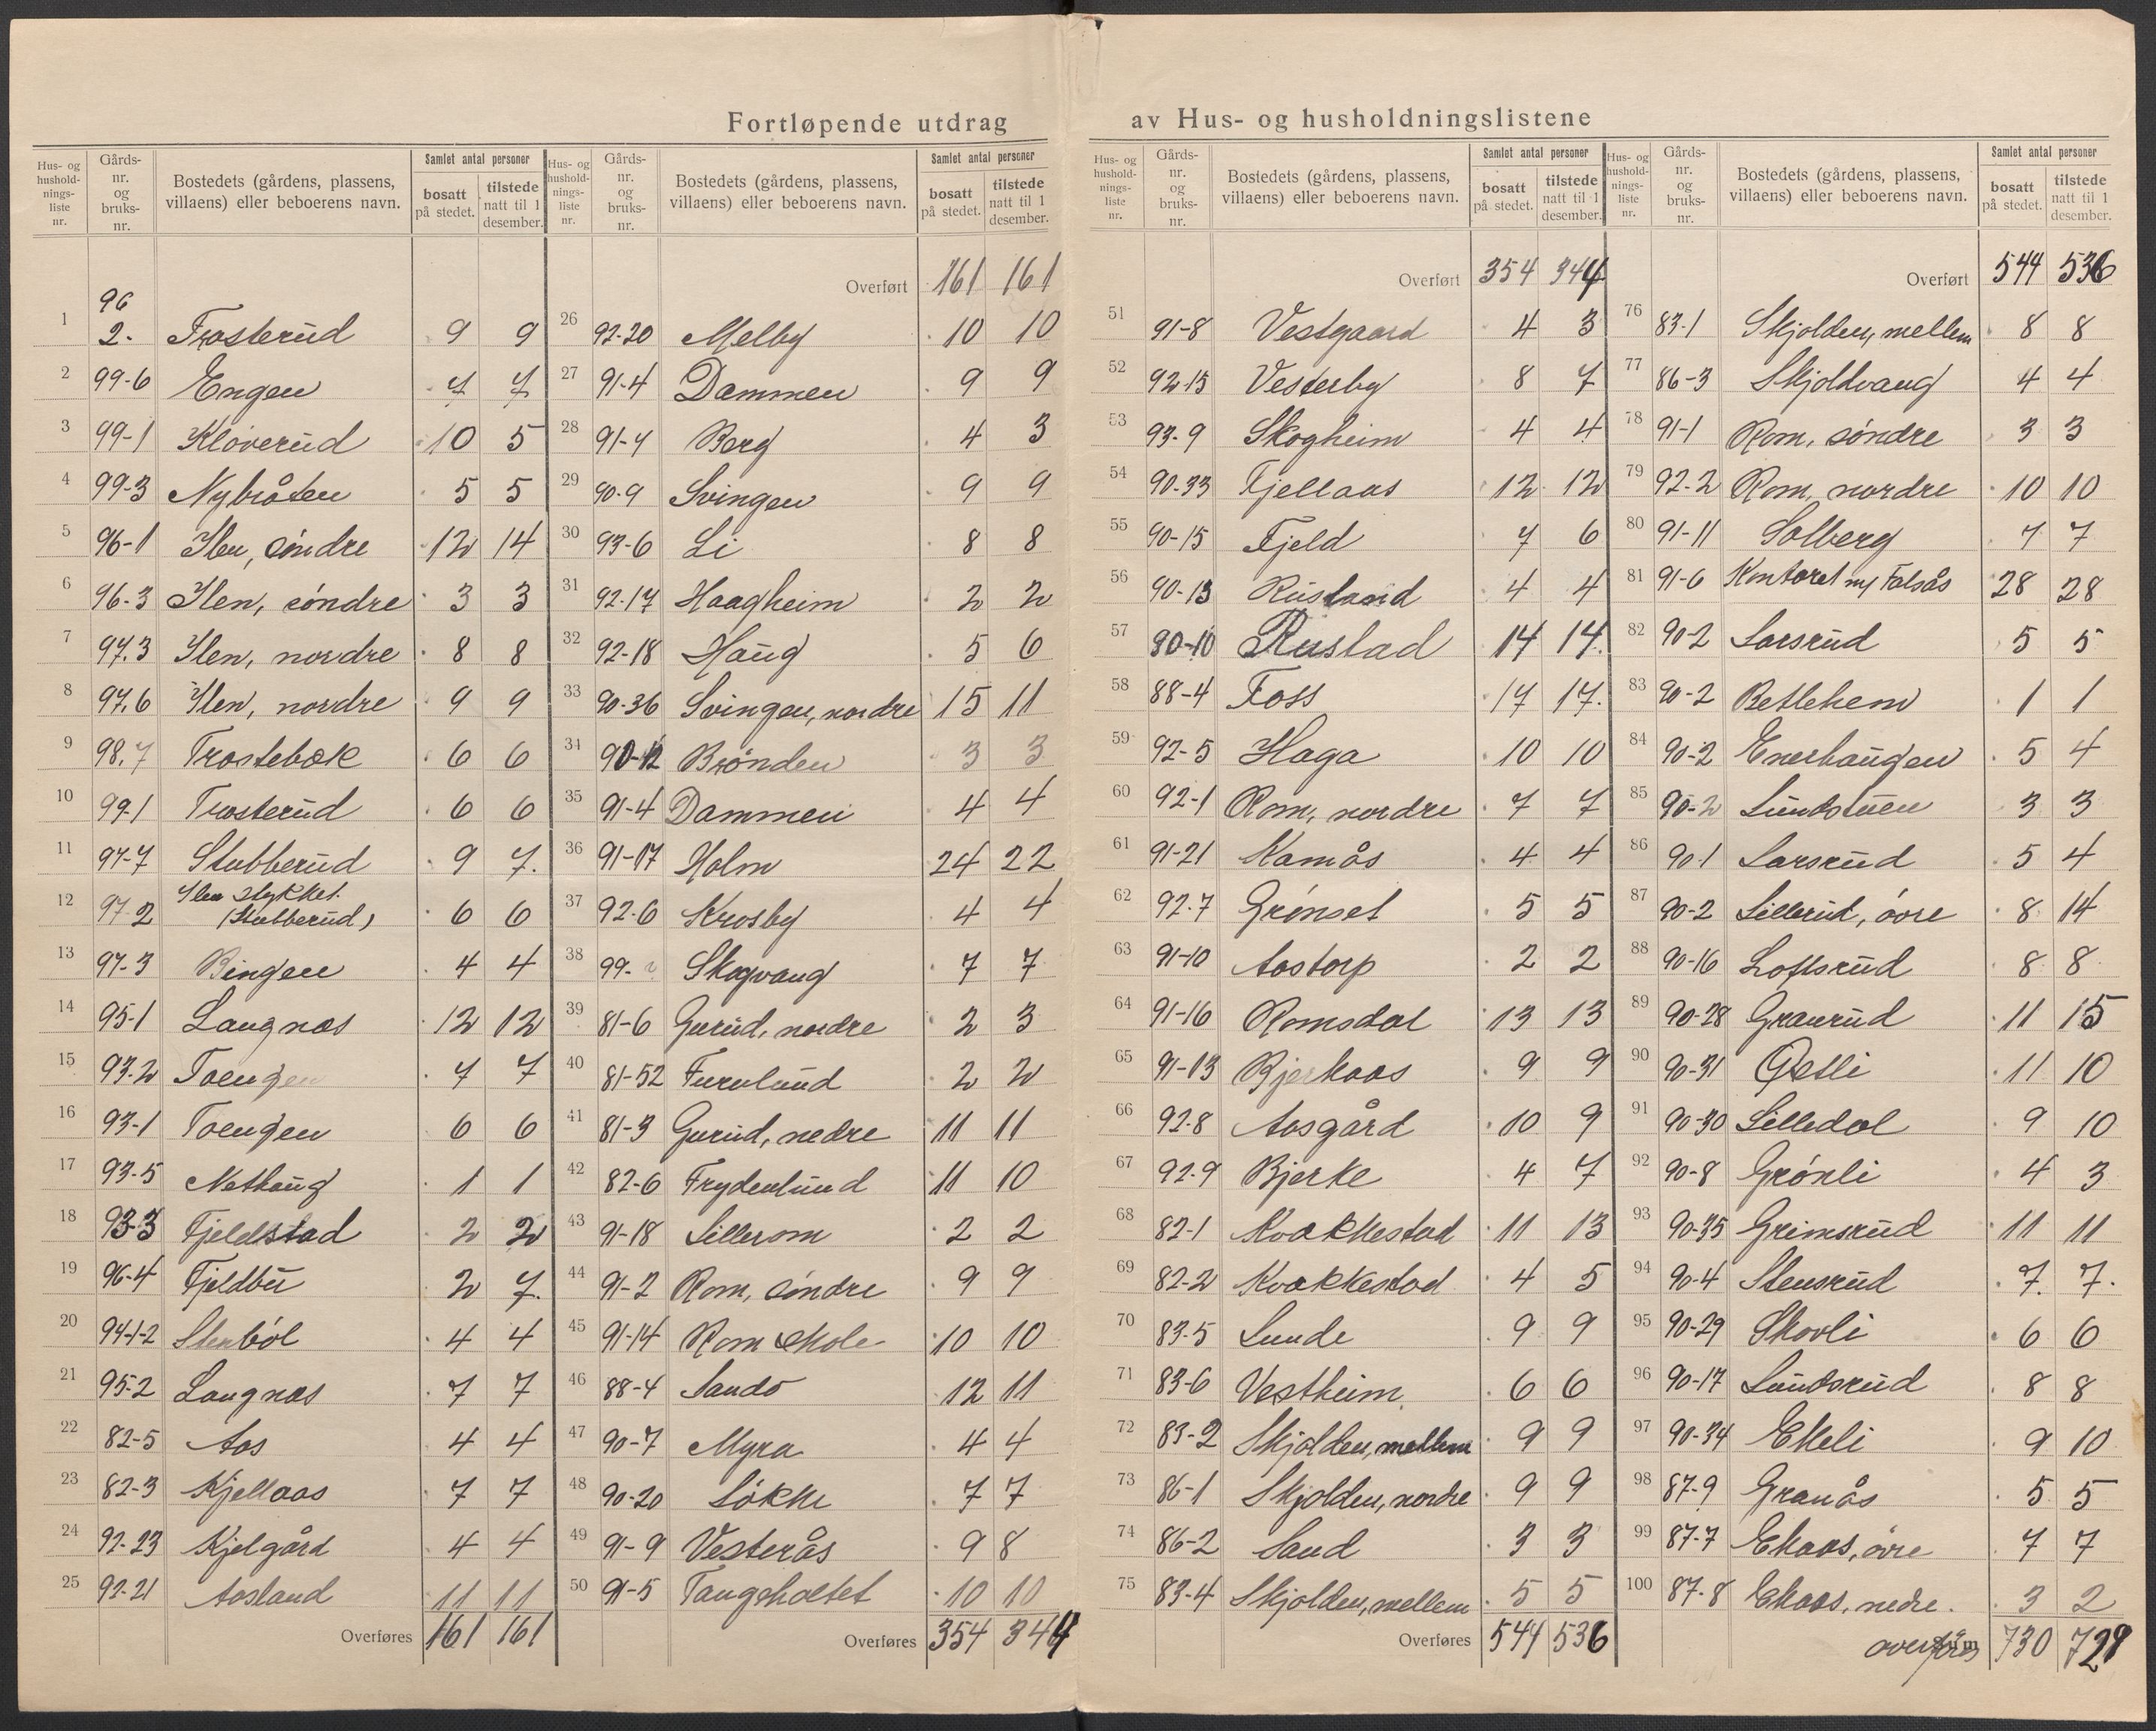 Fortløpende utdrag av Hus- og husholdningslistene
Hus- og hushold-nings-liste nr. | Gårds-nr. og bruks-nr. | Bostedets (gårdens, plassens, villaens) eller beboerens navn. | Samlet antal personer | bosatt på stedet. | tilstede natt til 1 desember.
1 96 2. Trosterud 9 9
2 99-6 Engen 7 7
3 99-1 Kløverud 10 5
4 99-3 Nybråten 5 5
5 96-1 Ilen, søndre 12 14
6 96-3 Ilen, søndre 3 3
7 97.3 Ilen, nordre 8 8
8 97.6 Ilen, nordre 9 9
9 98.7 Trostebæk 6 6
10 99-1 Trosterud 6 6
11 97-7 Stubberud 9 7.
12 97-2 Ilen stykket. (Stubberud) 6 6
13 97-3 Bingen 4 4
14 95-1 Langnæs 12 12
15 93-2 Toengen 7 7
16 93-1 Toengen 6 6
17 93-5 Nethaug 1 1
18 93-3 Fjeldstad 2 2
19 96-4 Fjeldbu 2 7.
20 94-1-2 Stenbøl 4 4
21 95-2 Langnæs 7 7
22 82-5 Aas 4 4
23 82-3 Kjellaas 7 7
24 92-23 Kjelgård 4 4
25 92-21 Aasland 11 11
Overføres 161 161
Hus- og hushold-nings-liste nr. | Gårds-nr. og bruks-nr. | Bostedets (gårdens, plassens, villaens) eller beboerens navn. | Samlet antal personer | bosatt på stedet. | tilstede natt til 1 desember.
Overført 161 161
26 92-20 Melby 10 10
27 91-4 Dammen 9 9
28 91-7 Berg 4 3
29 90-9 Svingen 9 9
30 93-6 Li 8 8
31 92-17 Haagheim 2 2
32 92-18 Haug 5 6
33 90-36 Svingen, nordre 15 11
34 90-12 Brønden 3 3
35 91-4 Dammen 4 4
36 91-17 Holm 24 22
37 92-6 Krosby 4 4
38 99- Skogvang 7 7
39 81-6 Gurud, nordre 2 3
40 81-52 Furulund 2 2
41 81-3 Gurud, nedre 11 11
42 82-6 Frydenlund 11 10
43 91-18 Lillerom 2 2
44 91-2 Rom, søndre 9 9
45 91-14 Rom skole 10 10
46 88-4 Sando 12 11
47 90-7 Myra 4 4
48 90-20 Løkke 7 7
49 91-9 Vesterås 9 8
50 91-5 Tangeholtet 10 10
Overføres 354 344
Hus- og hushold-nings-liste nr. | Gårds-nr. og bruks-nr. | Bostedets (gårdens, plassens, villaens) eller beboerens navn. | Samlet antal personer | bosatt på stedet. | tilstede natt til 1 desember.
Overført 354 344
51 91-8 Vestgaard 4 3
52 92-15 Vesterby 8 7
53 93-9 Skogheim 4 4
54 90-33 Fjellaas 12 12
55 90-15 Fjeld 7 6
56 90-13 Rustand 4 4
57 90-10 Rustad 14 14.
58 88-4 Foss 17 17.
59 92-5 Haga 10 10
60 92-1 Rom, nordre 7 7
61 91-21 Kamås 4 4
62 92-7 Grønset 5 5
63 91-10 Aastorp 2 2
64 91-16 Romsdal 13 13
65 91-13 Bjerkaas 9 9
66 92-8 Aasgård 10 9
67 92-9 Bjerke 4 7
68 82-1 Kvakkestad 11 13
69 82-2 Kvakkestad 4 5
70 83-5 Lunde 9 9
71 83-6 Vestheim 6 6
72 83-2 Skjolden, mellem 9 9
73 86-1 Skjolden, nordre 9 9
74 86-2 Sand 3 3
75 83-4 Skjolden, mellem 5 5
Overføres 544 536
Hus- og hushold-nings-liste nr. | Gårds-nr. og bruks-nr. | Bostedets (gårdens, plassens, villaens) eller beboerens navn. | Samlet antal personer | bosatt på stedet. | tilstede natt til 1 desember.
Overført 544 536
76 83-1 Skjolden, mellem 8 8
77 86-3 Skjoldvang 4 4
78 91-1 Rom, søndre 3 3
79 92-2 Rom, nordre 10 10
80 91-11 Solberg 7 7
81 91-6 Kontoret m/ Falsås 28 28
82 90-2 Larsrud 5 5
83 90-2 Betlehem 1 1
84 90-2 Enerhaugen 5 4
85 90-2 Lundstuen 3 3
86 90-1 Larsrud 5 4
87 90-2 Lillerud, øvre 8 14
88 90-16 Loftsrud 8 8
89 90-28 Granrud 11 15
90 90-31 Østli 11 10
91 90-30 Lilledal 9 10
92 90-8 Grønli 4 3
93 90-35 Grimsrud 11 11
94 90-4 Stensrud 7. 7.
95 90-29 Skovli 6 6
96 90-17 Lundsrud 8 8
97 90-34 Ekeli 9 10
98 87-9 Granås 5 5
99 87-7 Ekaas, øvre 7 7
100 87-8 Ekaas, nedre. 3 2
overføres 730 729